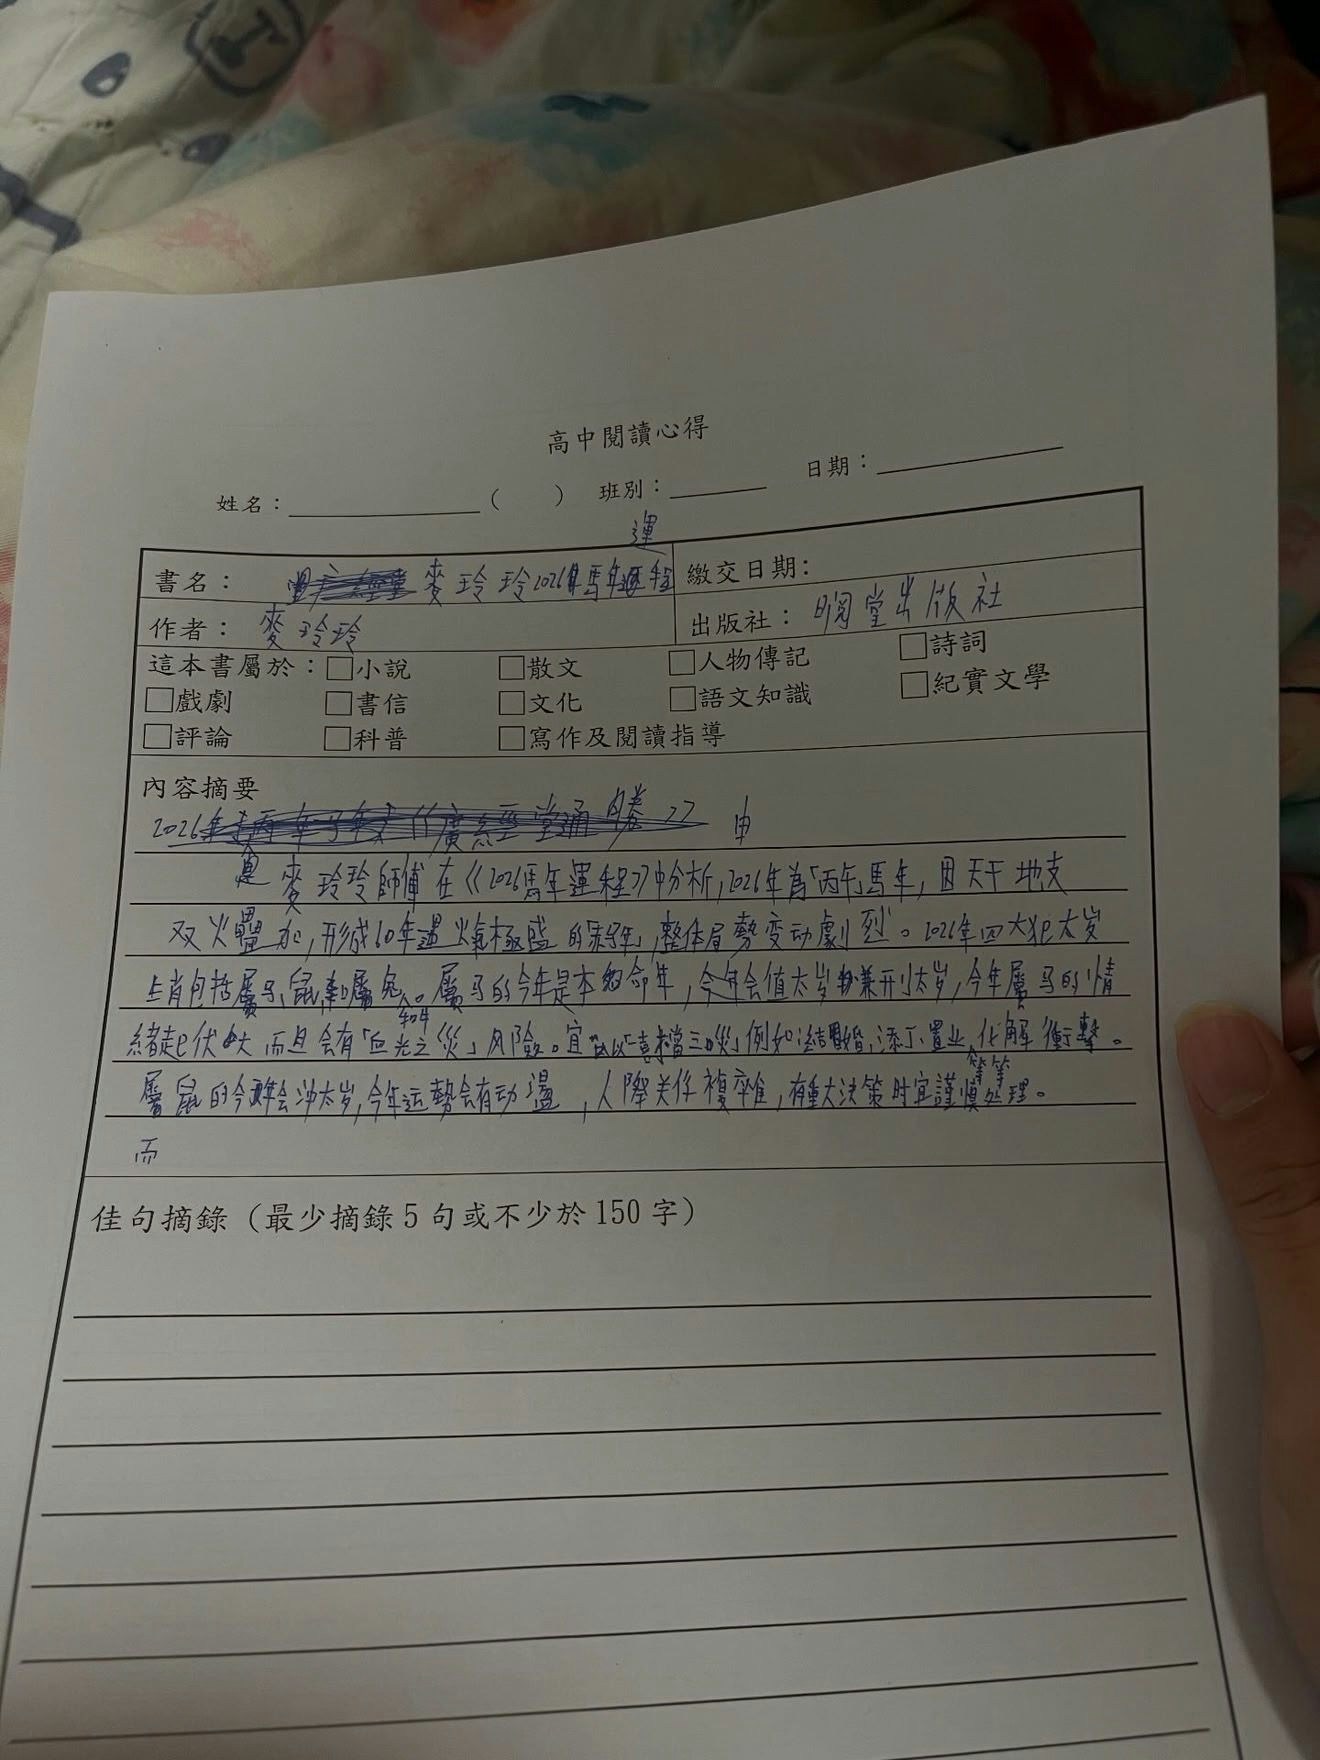 高中閱讀心得
姓名：（ ） 班別： 日期：
運
書名： 麥玲玲2026年馬年運程 繳交日期：
作者： 麥玲玲 出版社： 閱堂出版社
這本書屬於：□小說 □散文 □人物傳記 □詩詞
□戲劇 □書信 □文化 □語文知識 □紀實文學
□評論 □科普 □寫作及閱讀指導
內容摘要
2026年 廣經堂通勝
麥玲玲師傅在《2026馬年運程》中分析，2026年為「丙午」馬年，因天干地支
双火疊加，形成60年一遇火氣極盛的，整体局勢变动劇烈。2026年四大犯太岁
生肖包括屬马、鼠和屬兔。屬马的今年是本命年，今年会值太岁兼刑太岁，今年屬马的情
緒起伏大而且会有「血光之災」风险。宜「以喜擋三災」例如：結婚，添丁、置业等等化解衝擊。
屬鼠的今年会沖太岁，今年运勢会有动盪，人際关係複雜，有重大決策时宜謹慎处理。
而
佳句摘錄（最少摘錄5句或不少於150字）